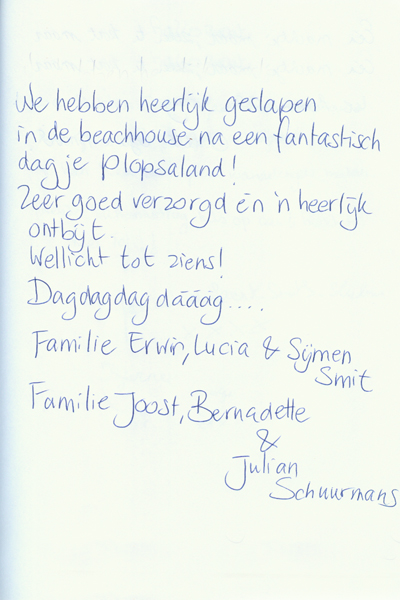 We hebben heerlijk geslapen
in de beachhouse na een fantastisch
dagje Plopsaland!
Zeer goed verzorgd én 'n heerlijk
ontbijt.
Wellicht tot ziens!
Dagdagdag dááág....
Familie Erwin, Lucia & Sijmen
Smit
Familie Joost, Bernadette
&
Julian
Schuurmans